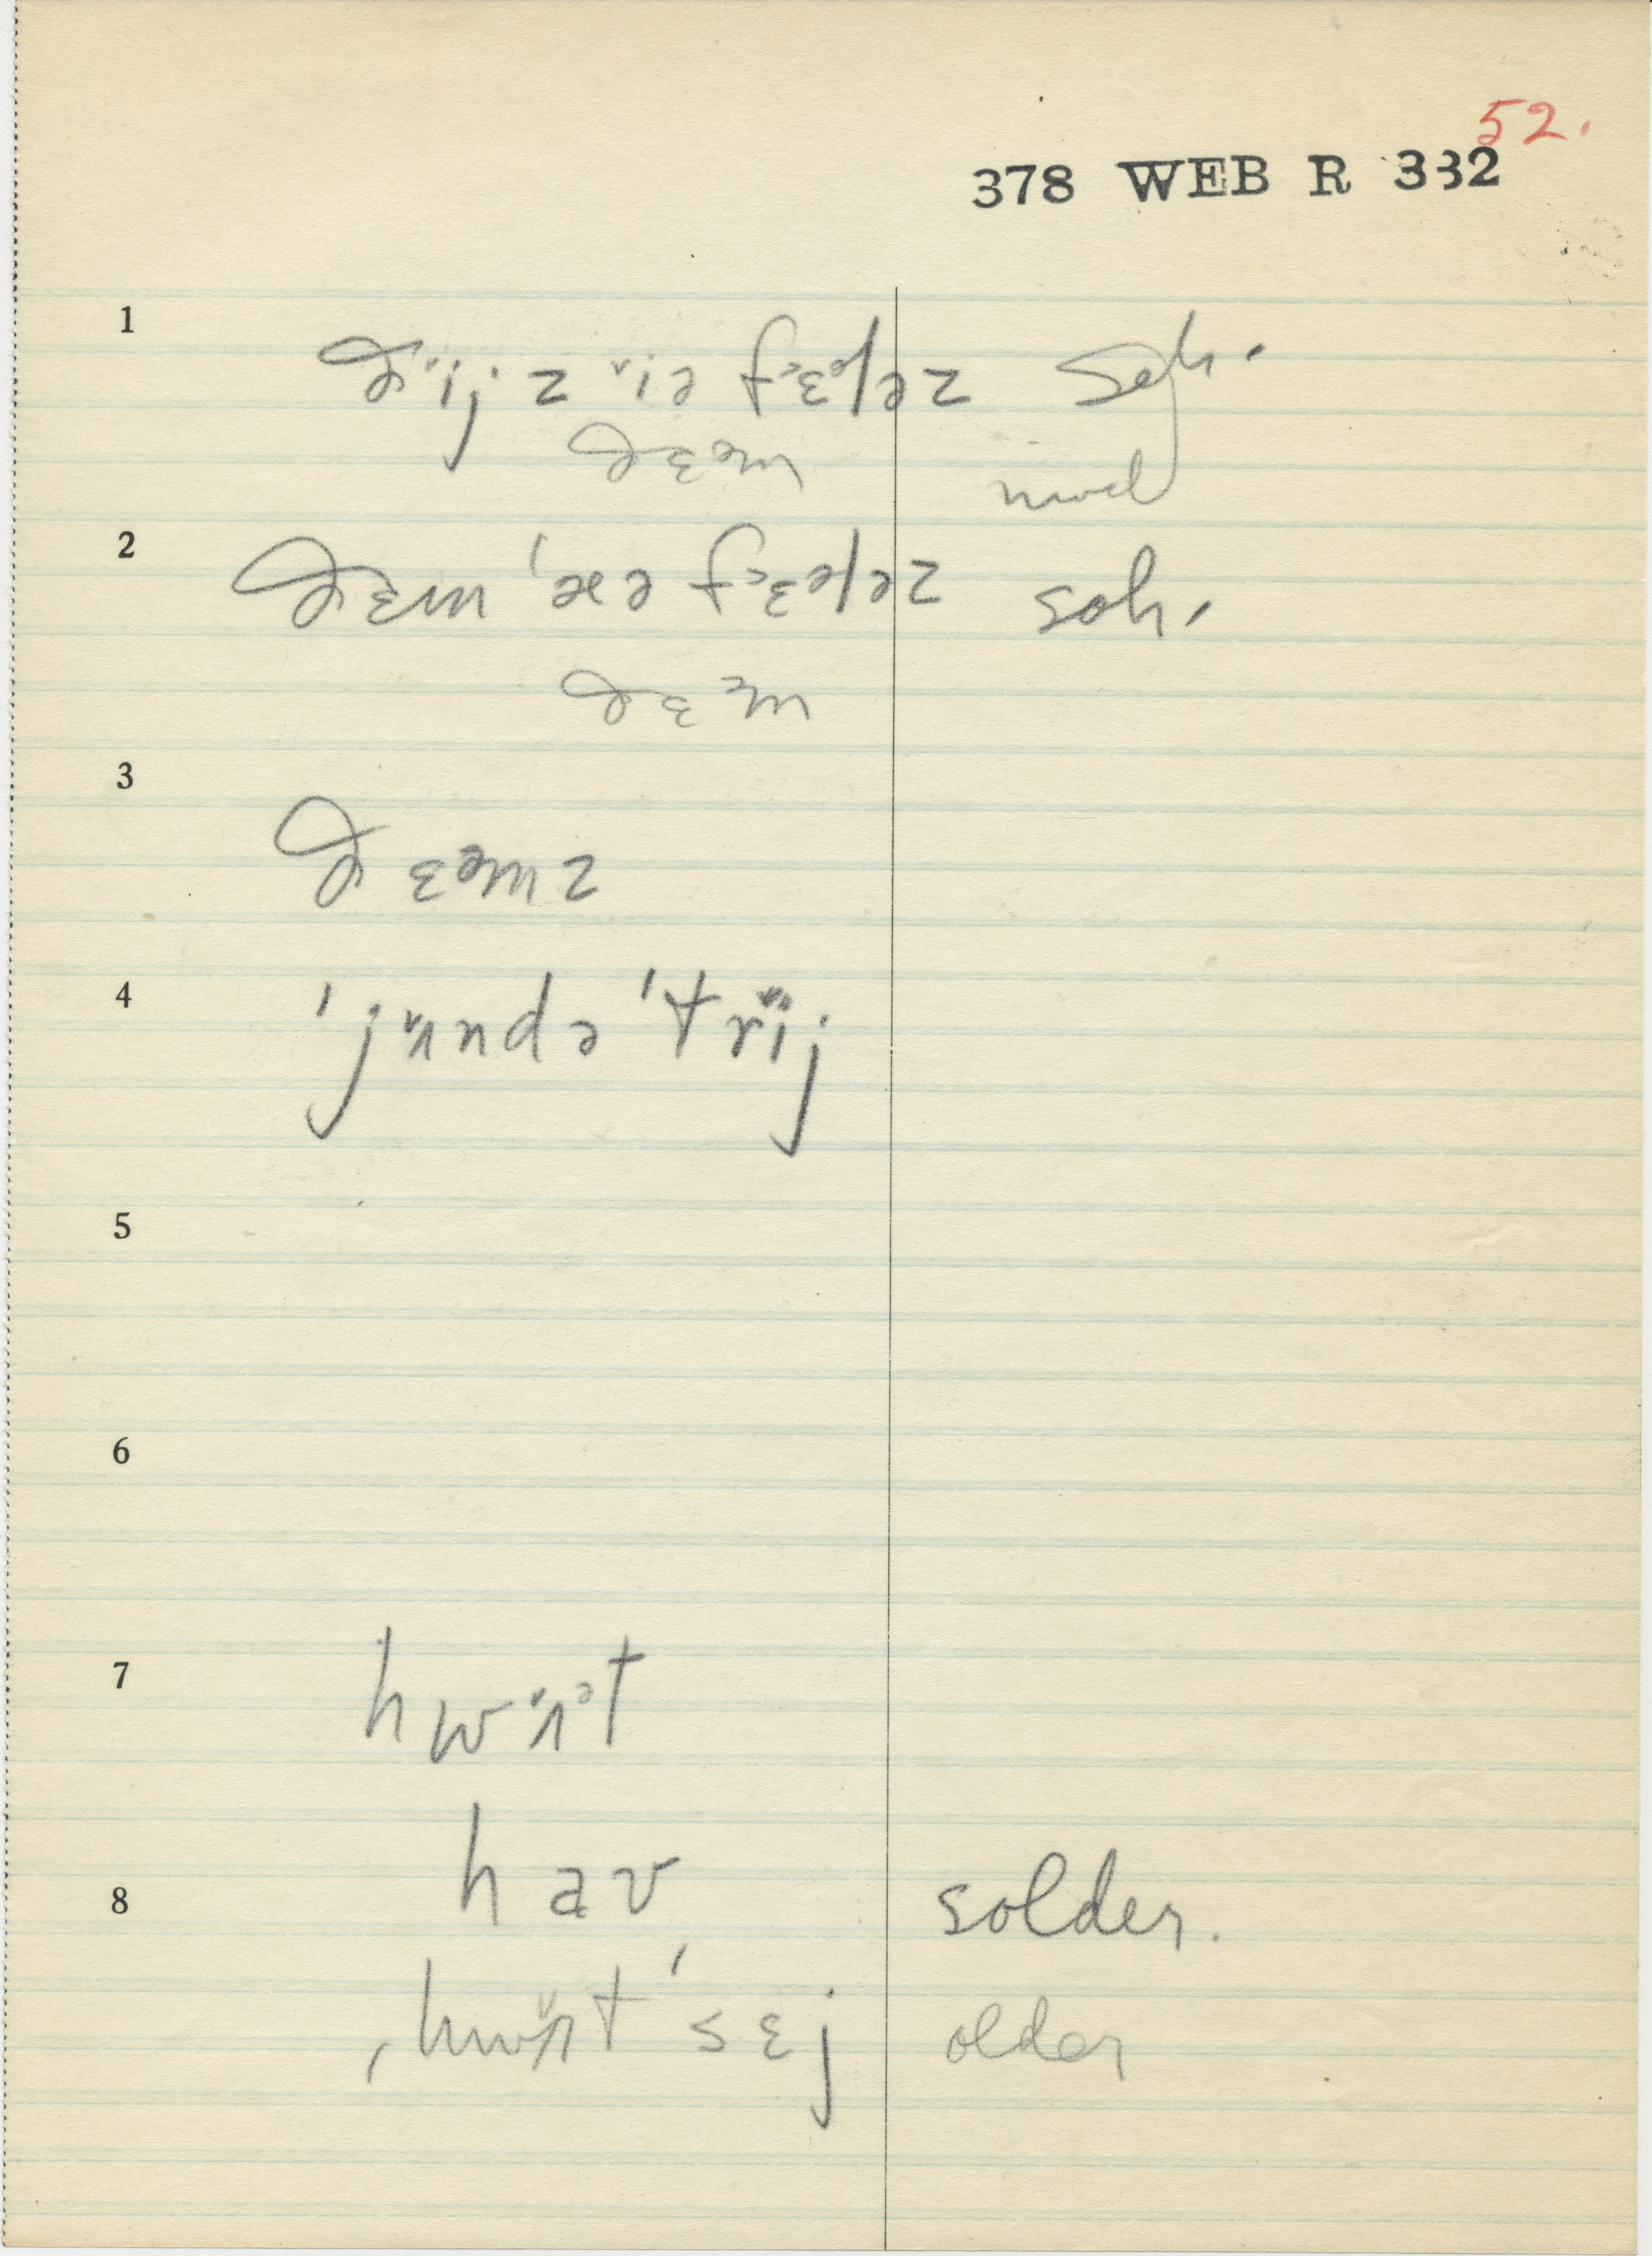 52.
378 WEB R 332
1 ðĭ̈jz ĭ̌ə fɛləz soh.
ðɛəm mod
2 ðɛm ˈæə fɛləz soh.
ðɛ əm
3 ðɛəmz
4 ˈjʌ̌ndə ˈtrĭj
5
6
7 hwʌ̌ət
hav
8 solder.
ˌhwʌ̌t ˈsɛj older